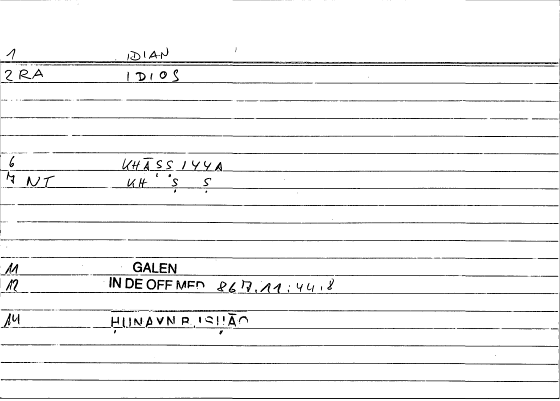 1 IDIAN
2 RA IDIOS
6 KHĀSSIYYA
7 NT KH Ṣ Ṣ
11 GALEN
12 IN DE OFF MED 867.11:44.8
14 ḤUNAYN B. ISḤĀQ